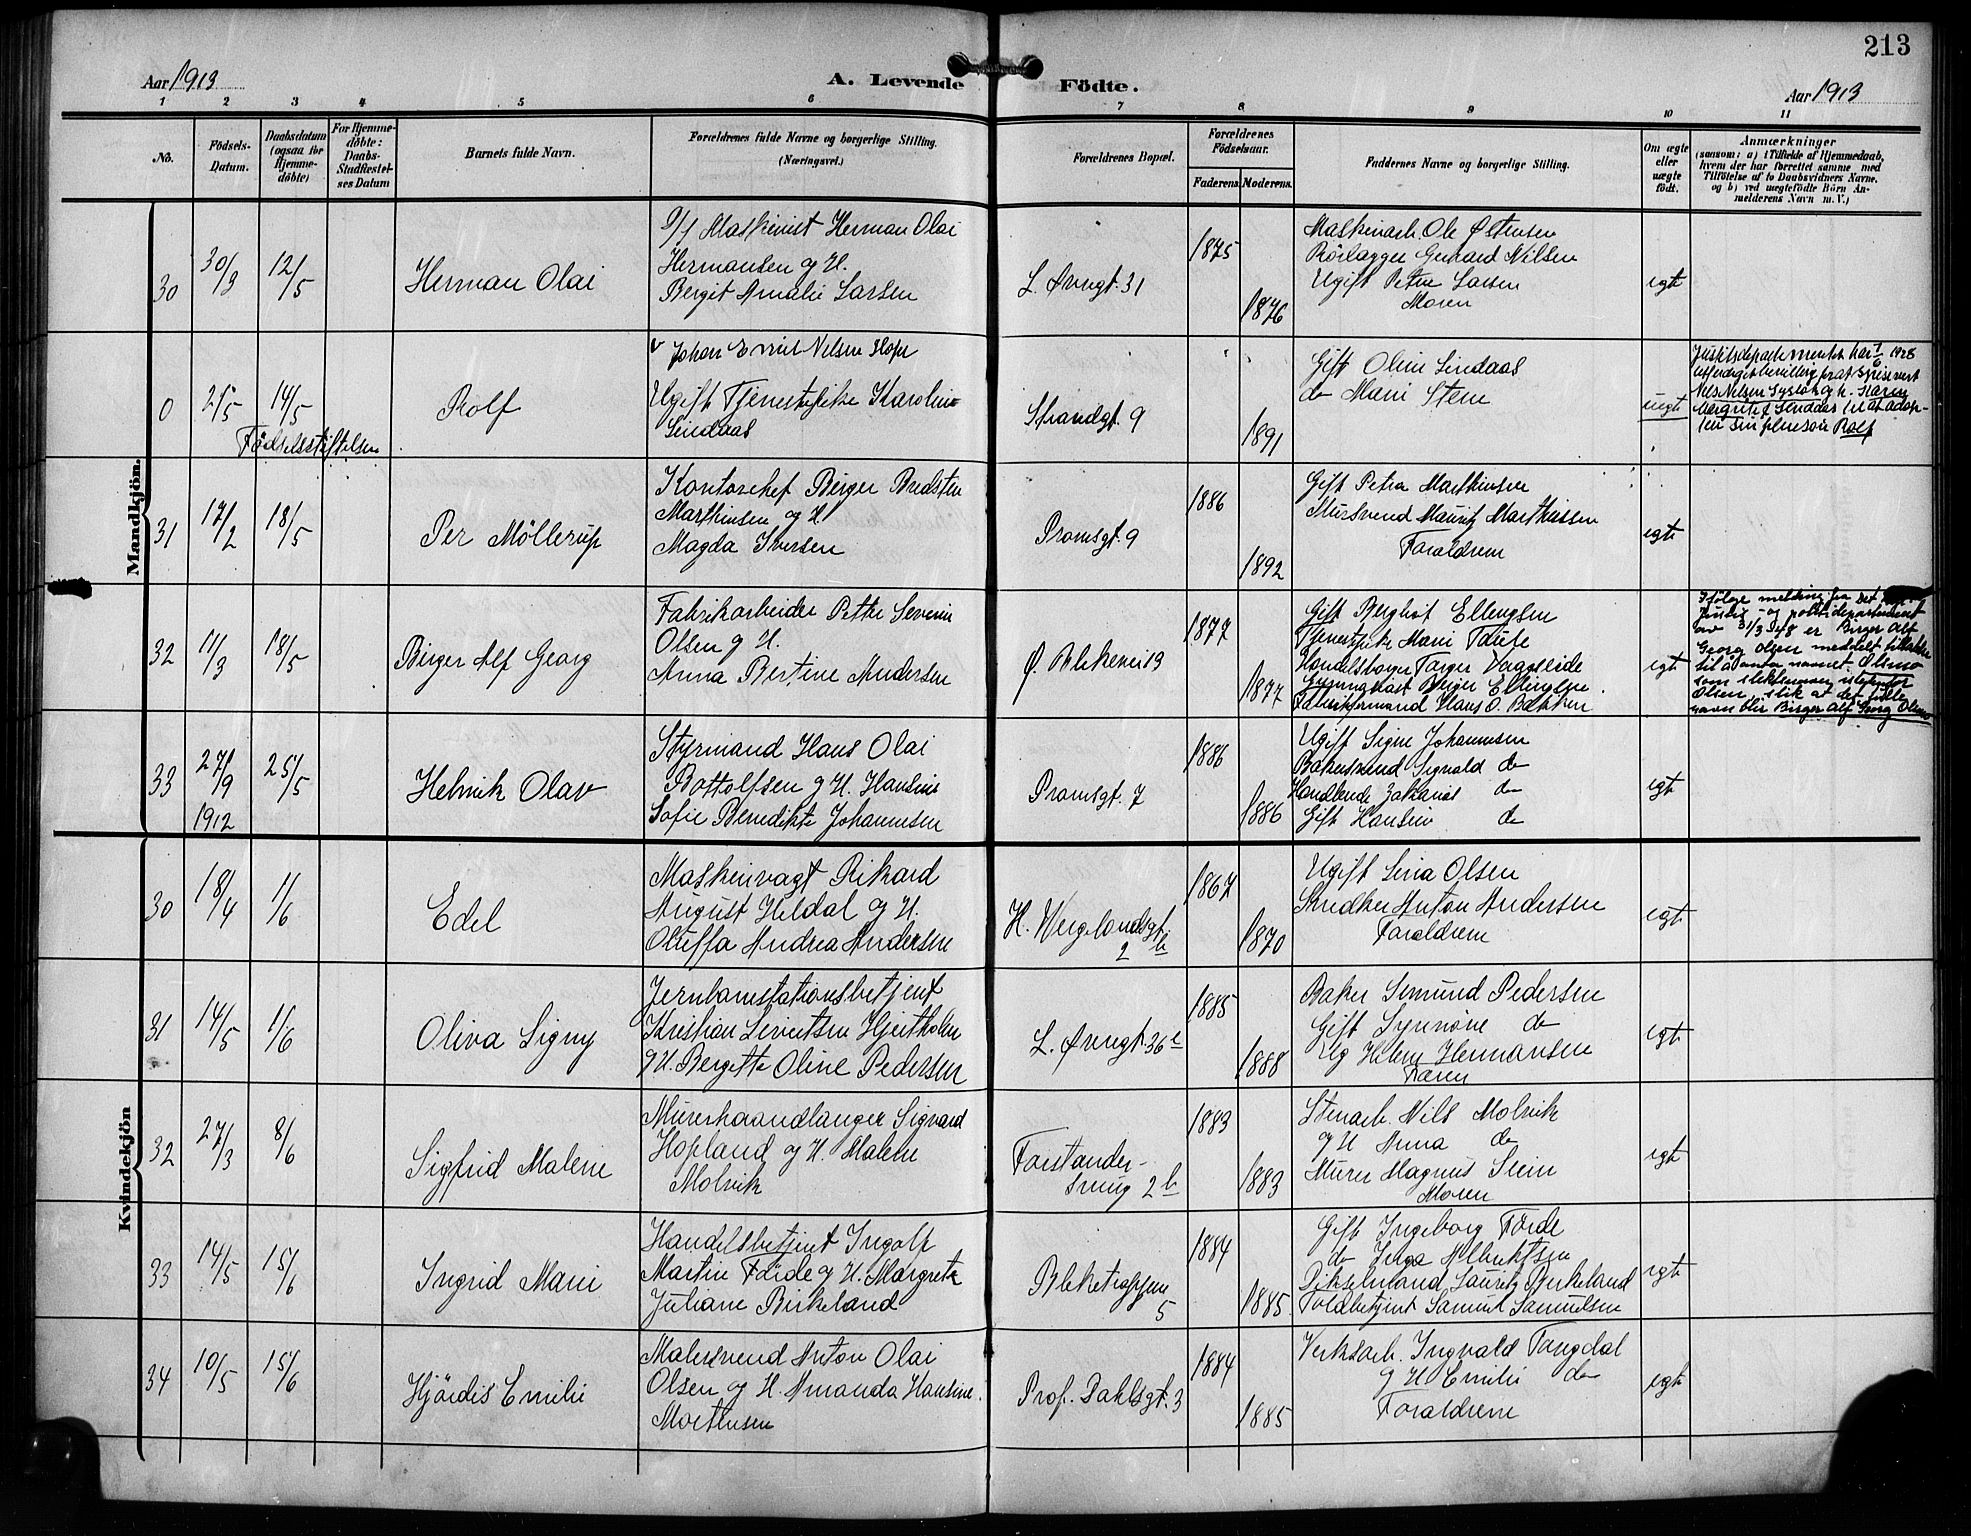 213
Aar 1913
A. Levende Födte.
Aar 1913
1 2 3 4 5 6 7 8 9 10 11
No.
Födsels-Datum.
Daabsdatum (ogsaa för Hjemme-döbte)
For Hjemme-döbte: Daabs-Stadfæstel-ses Datum
Barnets fulde Navn.
Forældrenes fulde Navne og borgerlige Stilling. (Næringsvei.)
Forældrenes Bopæl.
Forældrenes Födselsaar.
Faderens. Moderens.
Faddernes Navne og borgerlig Stilling.
Om ægte eller uægte födt.
Anmærkninger
(saasom: a) i Tilfælde af Hjemmedaab,
hvem der har forrettet samme, med
Tilföielse af to Daabsvidners Navne,
og b) ved uægtefödte Börn An-
melderens Navn m. V.)
Mandkjön.
30
30/3
12/5
Herman Olai
Maskinist Herman Olai
Hermansen og H.
Bergit Amalie Larsen
L. Øvregt. 31
1875
1876
Maskinarb. Ole Østensen
Rörlægger Gerhard Nilsen
Ugift Petra Larsen
Moren
egt
0
2/5
14/5
Födselsstiftelsen
Rolf
Johan Emil Nilsen Hope
Ugift Tjenestepike Karoline
Lindaas
Strandgt. 9
1891
Gift Oline Lindaas
do Marie Stene
uegt
Justitsdepartementet har 1/6 1928
utferdiget bevilling for at
Nils Nilsen og h. Karen
Margrete f. Lindaas til at adop-
tere sin plejesön Rolf
31
17/2
18/5
Per Möllerup
Kontorchef Birger Bredsten
Marthinsen og H.
Magda Iversen
Promsgt. 9
1886
1892
Gift Petra Marthinsen
Mursvend Mauritz Marthinsen
Forældrene
egt
32
11/3
18/5
Birger Alf Georg
Fabrikarbeider Petter Severin
Olsen og H.
Anna Bertine Andersen
Ø. Blekevei 19
1877
1877
Gift Bergliot Ellingsen
Tjenestepike Marie Taule
Handelsborger Torger Vaagseide
Gymnasiast Birger Ellingsen
Fabrikformand Hans O. Bakken
egt
Ifölge melding fra Det
Justis- og politidepartement
av 31/3 48 er Birger Alf
Georg Olsen meddelt tillatelse
til å anta navnet Olsmo
som slektsnavn istedenfor
Olsen, slik at det fulle
navn blir Birger Alf Georg Olsmo
33
27/9
1912
25/5
Helmik Olav
Styrmand Hans Olai
Bottolfsen og H. Hansine
Sofie Benedikte Johannesen
Promsgt. 7
1886
1886
Ugift Signe Johannesen
Bakersvend Sigvald do
Handlende Zakarias do
Gift Hansine do
egt
Kvindekjön
30
18/4
1/6
Edel
Maskinvagt Rikard
August Heldal og H.
Oluffa Andrea Andersen
H. Wergelandsgt.
2 b
1867
1870
Ugift Lina Olsen
Snedker Anton Andersen
Forældrene
egt
31
14/5
1/6
Oliva Signy
Jernbanestationsbetjent
Kristian Sivertsen Hjertholm
og H. Bergitte Oline Pedersen
L. Øvregt. 36 c
1885
1888
Baker Semund Pedersen
Gift Synnöve do
Ug Helene Hermansen
Faren
egt
32
27/3
8/6
Sigfrid Malene
Murerhaandlanger Sigvard
Hopland og H. Malene
Molvik
Forstander-
smug 2 b
1883
1883
Stenarb. Nils Molvik
og H Anna do
Murer Magnus Stein
Moren
egt
33
14/5
15/6
Ingrid Marie
Handelsbetjent Ingolf
Martin Förde og H. Margrete
Juliane Birkeland
Bleketrappen
5
1884
1885
Gift Ingeborg Förde
do Inga Albriktsen
Lauritz Birkeland
Toldbetjent Samuel Samuelsen
egt
34
10/5
15/6
Hjördis Emilie
Malersvend Anton Olai
Olsen og H. Amanda Hansine
Mortensen
Prof. Dahlsgt. 3
1884
1885
Verksarb. Ingvald Tangdal
og H Emilie do
Forældrene
egt